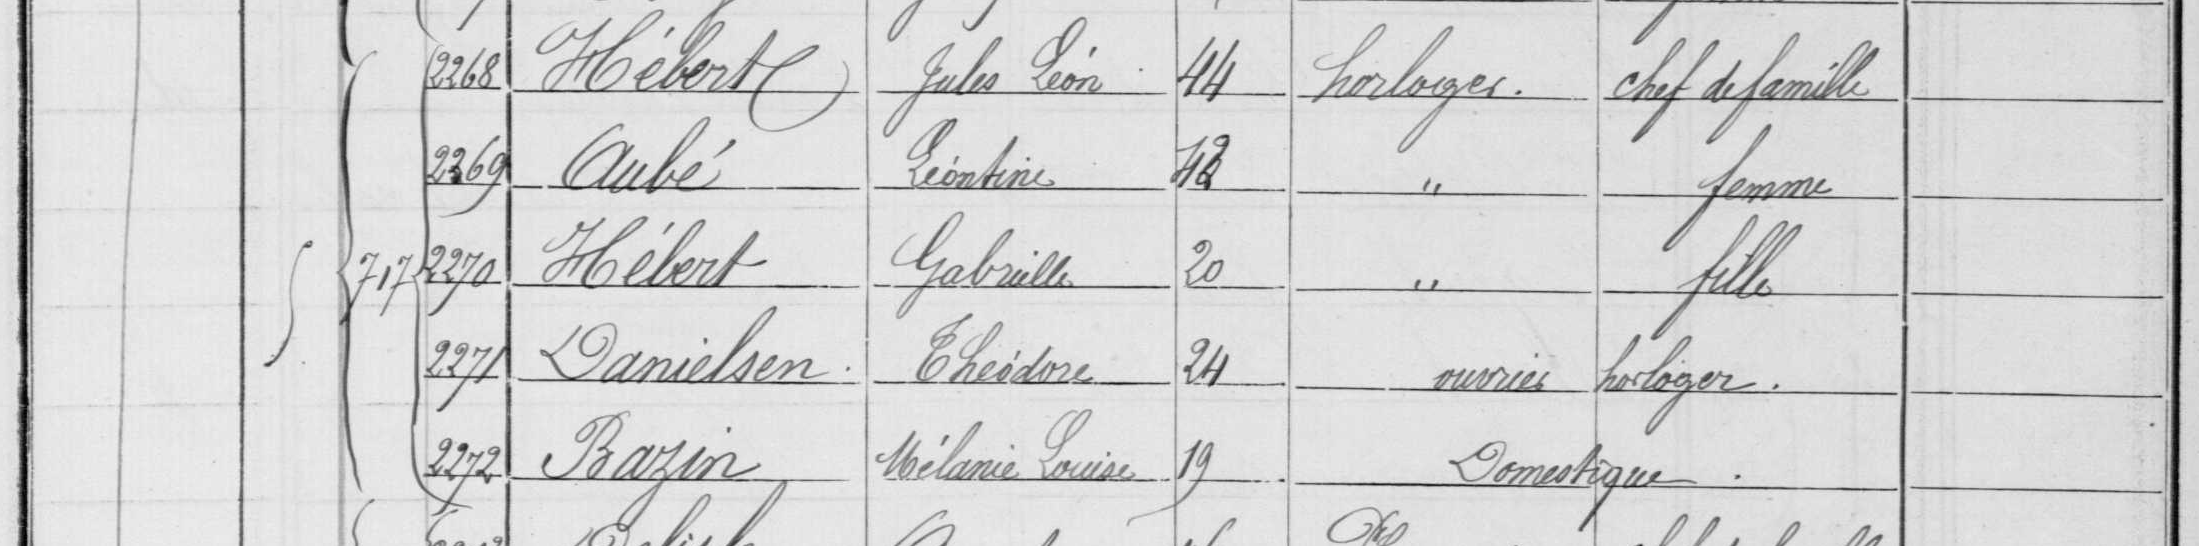 2268 Hébert Jules Léon 44 horloger. chef de famille
2269 Aubé Léontine 42 " femme
717 2270 Hébert Gabrielle 20 " fille
2271 Danielsen. Théodore 24 ouvrier horloger.
2272 Bazin Mélanie Louise 19 Domestique.